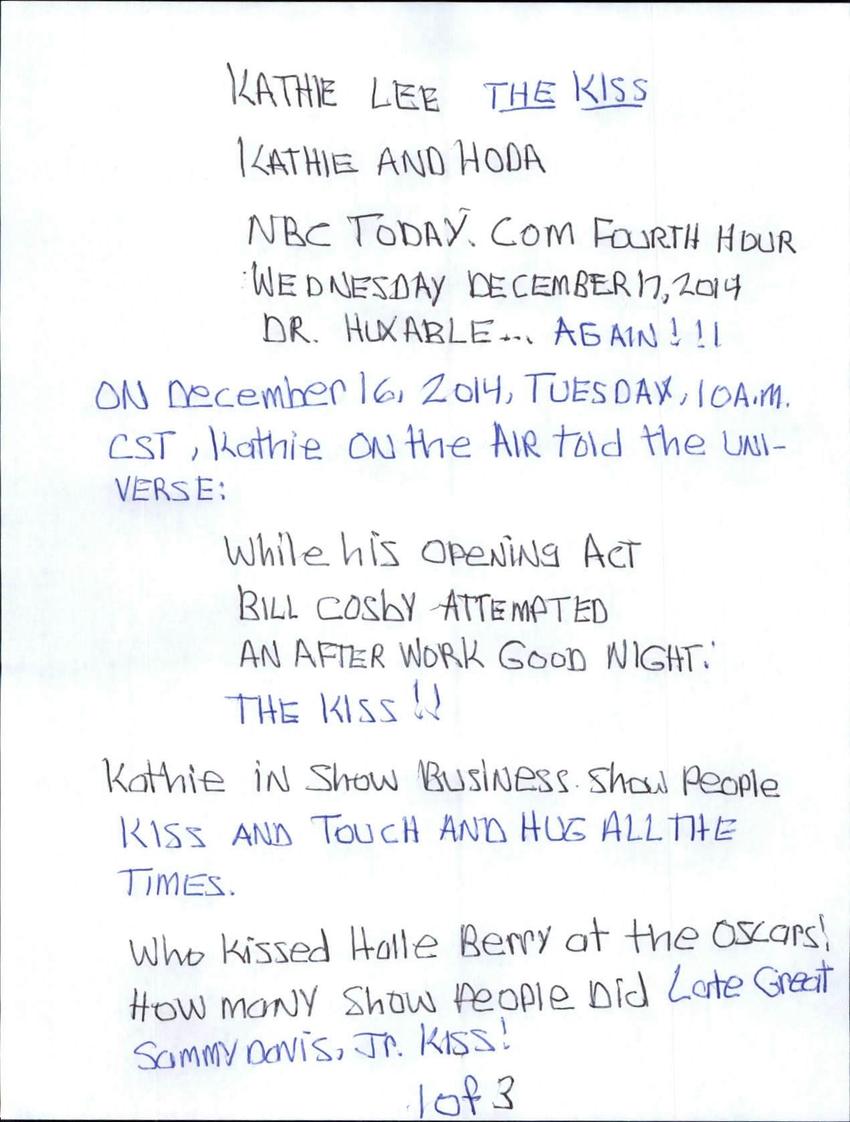 KATHIE LEE THE KISS
KATHIE AND HODA
NBC TODAY. COM FOURTH HOUR
WEDNESDAY DECEMBER 17, 2014
DR. HUXABLE... AGAIN!!!
ON December 16, 2014, TUESDAY, 10A.M.
CST, Kathie ON the AIR told the UNI-
VERSE:
While his OPENING ACT
BILL COSBY ATTEMPTED
AN AFTER WORK GOOD NIGHT.
THE KISS!!
Kathie IN Show BUSINESS. Show People
KISS AND TOUCH AND HUG ALL THE
TIMES.
Who Kissed Halle Berry at the OSCARS!
How maNY Show People Did Late Great
SammY Davis, Jr. KISS!
1 of 3